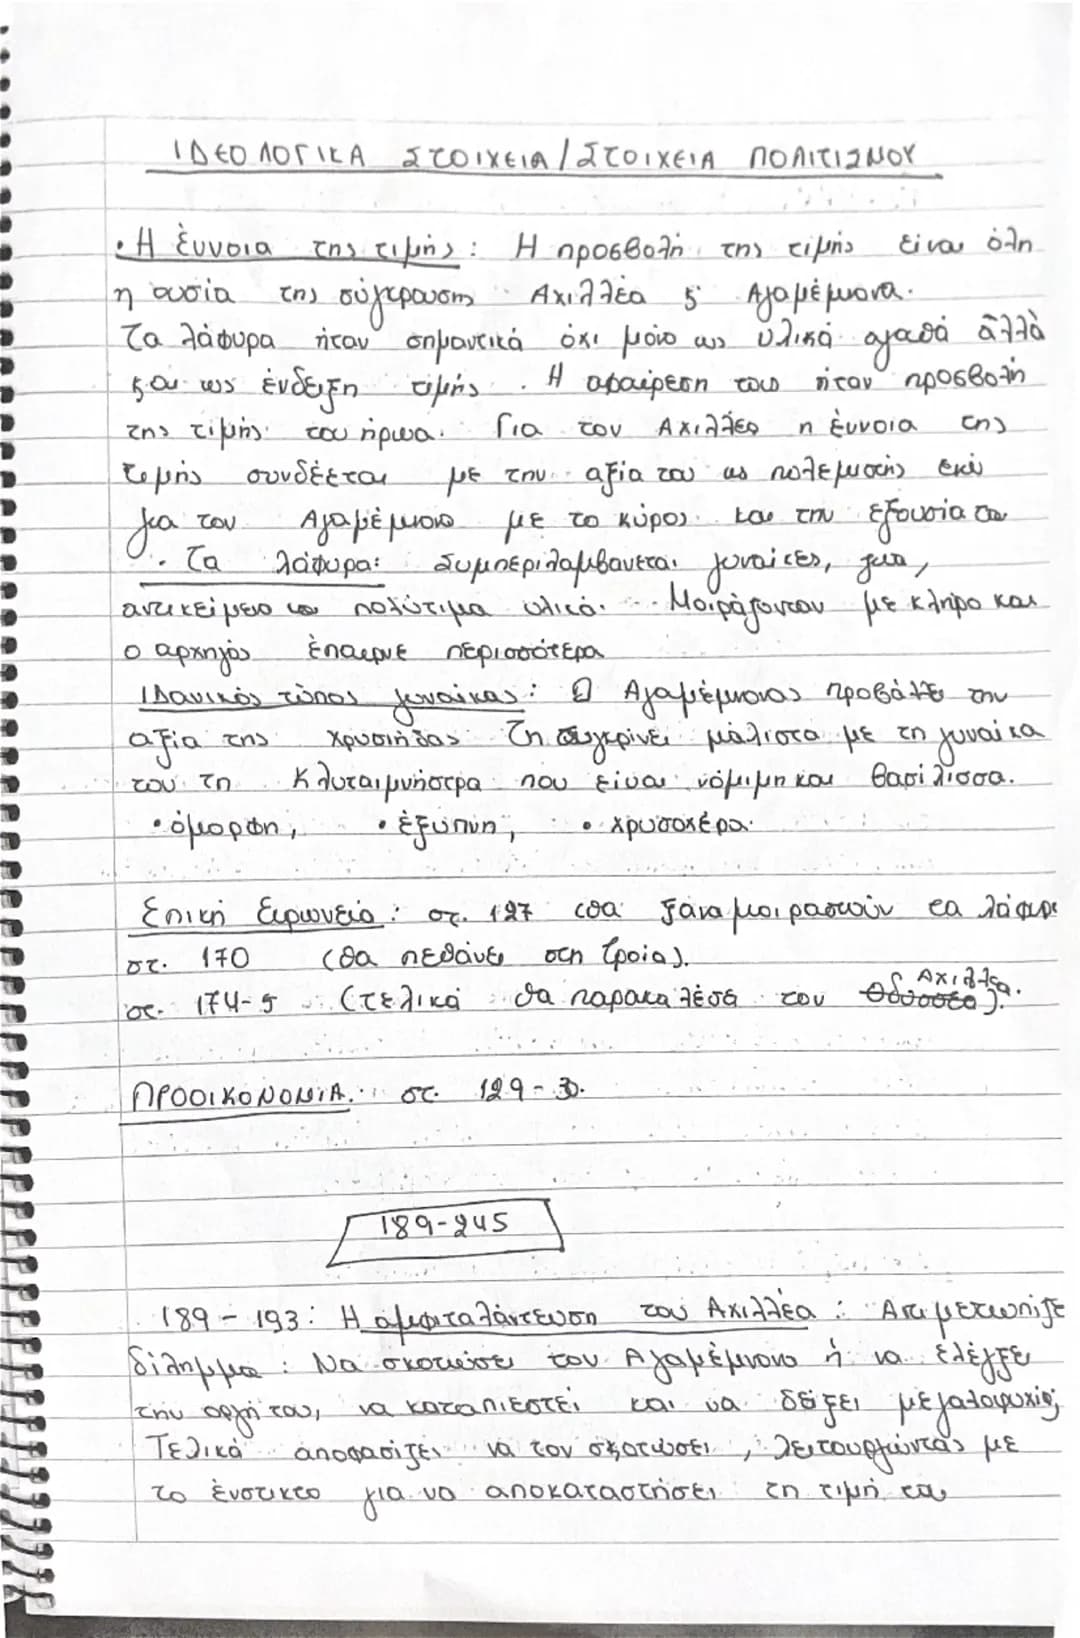 ΙΔΕΟΛΟΓΙΚΑ ΣΤΟΙΧΕΙΑ/ΣΤΟΙΧΕΙΑ ΠΟΛΙΤΙΣΜΟΥ
• Η έννοια της τιμής: Η προσβολή της τιμής είναι όλη
η ουσία της σύγκρουσης Αχιλλέα & Αγαμέμνονα.
Τα λάφυρα ήταν σημαντικά όχι μόνο ως υλικά αγαθά αλλά
και ως ένδειξη τιμής. Η αφαίρεση τους ήταν προσβολή
της τιμής του ήρωα. Για τον Αχιλλέα η έννοια της
τιμής συνδέεται με την αξία του ως πολεμιστής ενώ
για τον Αγαμέμνονα με το κύρος και την εξουσία του
• Τα λάφυρα: Συμπεριλαμβάνεται γυναίκες, ζώα,
αντικείμενα και πολύτιμα υλικά. Μοιράζονταν με κλήρο και
ο αρχηγός έπαιρνε περισσότερα
Ιδανικός τύπος γυναίκας: Ο Αγαμέμνονας προβάλλε την
αξία της Χρυσηίδας Τη συγκρίνει μάλιστα με τη γυναίκα
του τη Κλυταιμνήστρα που είναι νόμιμη και βασίλισσα.
• όμορφη, • έξυπνη, • χρυσοχέρα.
Επική Ειρωνεία: στ. 127 (θα ξαναμοιραστούν τα λάφυρα
στ. 170 (θα πεθάνει στη Τροία).
στ. 174-5 (τελικά θα παρακαλέσει τον Οδυσσέα Αχιλλέα).
ΠΡΟΟΙΚΟΝΟΜΙΑ: στ. 129-30.
189-245
189-193: Η αμφιταλάντευση του Αχιλλέα: Αντιμετωπίζε
δίλημμα: Να σκοτώσει τον Αγαμέμνονα ή να ελέγξει
την οργή του, να καταπιεστεί και να δείξει μεγαλοψυχία;
Τελικά αποφασίζει να τον σκοτώσει, λειτουργώντας με
το ένστικτο για να αποκαταστήσει τη τιμή του